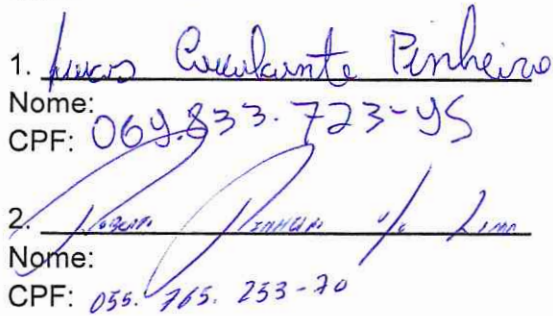 1. Lucas Cavalcante Pinheiro
Nome:
CPF: 069.833.723-45
2. Pinheiro Lima
Nome:
CPF: 055.765.253-70